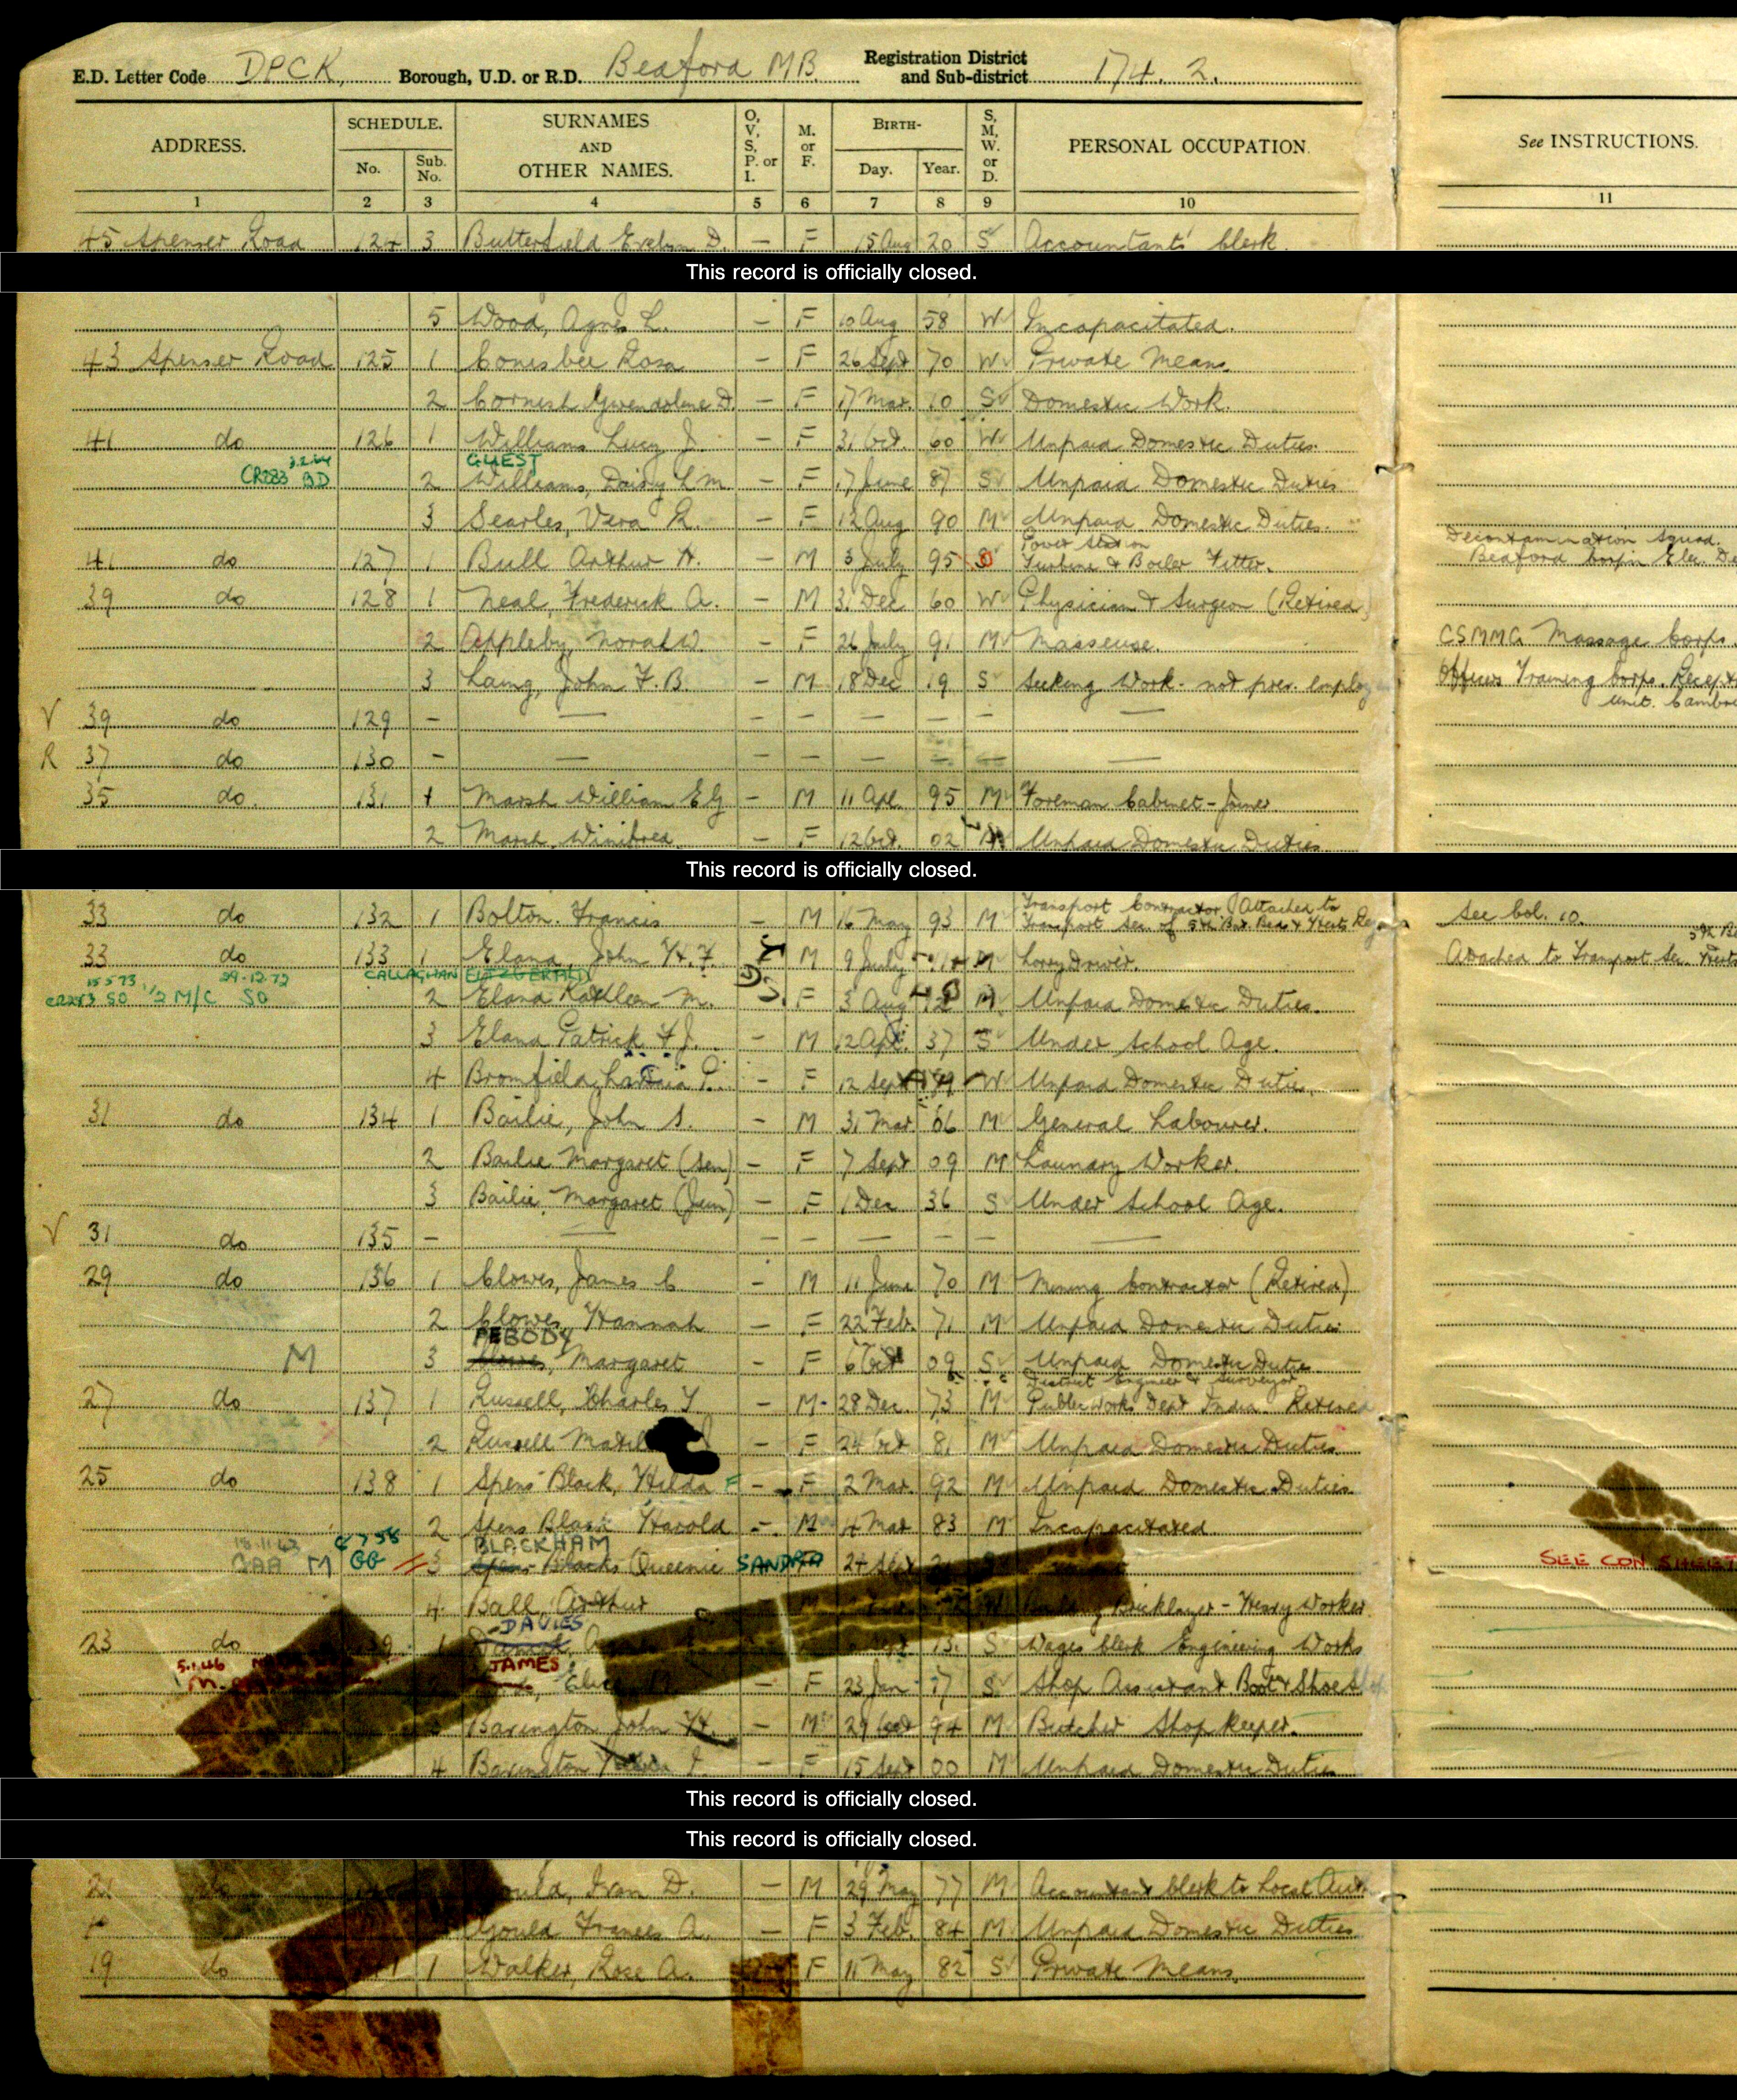 E.D. Letter Code DPCK, Borough, U.D. or R.D. Bedford MB. Registration District and Sub-district 174. 2.
ADDRESS. SCHEDULE. No. Sub. No. SURNAMES AND OTHER NAMES. O, V, S, P. or I. M. or F. BIRTH- Day. Year. S, M, W. or D. PERSONAL OCCUPATION. See INSTRUCTIONS.
1 2 3 4 5 6 7 8 9 10 11
45 Spenser Road 124 3 Butterfield Evelyn D. — F 15 Aug 20 S Accountants' Clerk.
This record is officially closed.
5 Wood, Agnes L. — F 10 Aug 58 W Incapacitated.
43 Spenser Road 125 1 Conesbee Rosa — F 26 Sept 70 W Private Means.
2 Cornish Gwendolene D. — F 17 Mar. 10 S Domestic Work.
41 do 126 1 Williams Lucy J. — F 31 Oct. 60 W Unpaid Domestic Duties.
3.2.64 GUEST
CR283 BD 2 Williams, Daisy L M. — F 17 June 87 S Unpaid Domestic Duties
3 Searles, Vera R. — F 12 Aug 90 M Unpaid Domestic Duties.
Power Station Decontamination Squad.
41 do 127 1 Bull Arthur H. — M 3 July 95 Turbine & Boiler Fitter. Bedford Corp'n Elec. De
39 do 128 1 Neal, Frederick A. — M 31 Dec 60 W Physician & Surgeon (Retired)
2 Appleby, Norah W. — F 26 July 91 M Masseuse. CSMMG Massage Corps.
3 Laing, John F. B. — M 18 Dec 19 S Seeking Work. not prev. employ Officers Training Corps. Recept
unit. Cambri
V 39 do 129 — — — — — — — —
R 37 do 130 — — — — — — — —
35 do. 131 1 Marsh William E G — M 11 Apl. 95 M Foreman Cabinet-Joiner
2 Marsh, Winifred — F 12 Oct. 02 M Unpaid Domestic Duties.
This record is officially closed.
Transport Contractor (Attached to
33 do 132 1 Bolton. Francis — M 16 May 93 M Transport Sec. of 5th Bat. Beds & Herts Reg See Col. 10.
33 do 133 1 Eland, John H. F. M 9 July M Lorry Driver. Attached to Transport Sec. Herts
15 5 73 29.12.72 CALLAGHAN FITZGERALD
CR283 SO 1/2 M/C SO 2 Eland Kathleen M. F 3 Aug M Unpaid Domestic Duties.
3 Eland Patrick F J. — M 12 Apl. 37 S Under School Age.
4 Bromfield — F 12 Sept W Unpaid Domestic Duties.
31 do 134 1 Bailie, John S. — M 31 Mar 06 M General Labourer.
2 Bailie Margaret (Sen) — F 7 Sept 09 M Laundry Worker.
3 Bailie, Margaret (Jun) — F 1 Dec 36 S Under School Age.
V 31 do 135 — — — — — — — —
29 do 136 1 Clowes, James C — M 11 June 70 M Mining Contractor (Retired)
2 Clowes, Hannah — F 22 Feb. 71 M Unpaid Domestic Duties
PEBODY
M 3 Clowes, Margaret — F 6 Oct 09 S Unpaid Domestic Duties
District Engineer & Surveyor
27 do 137 1 Russell, Charles T. — M 28 Dec. 73 M Public Works Dept India. Retired
2 Russell — F 24 Oct 81 M Unpaid Domestic Duties.
25 do 138 1 Spens-Black, Hilda F — F 2 Mar. 92 M Unpaid Domestic Duties
2 Spens Black Harold — M 4 Mar 83 M Incapacitated
18.11.43 BLACKHAM
M GG 3 Spens-Black Queenie SANDRA 24 Sep SEE CON SHEET
4 Ball, Arthur W Bricklayer - Heavy Worker
DAVIES
23 do 1 Sept 13. S Wages Clerk Engineering Works
5.1.46 JAMES
— F 23 Jan 17 S Shop Assistant Boot & Shoe
Barington John H. — M 29 Oct 94 M Butcher Shop Keeper.
4 Barington — F 15 Sept 00 M Unpaid Domestic Duties
This record is officially closed.
This record is officially closed.
21 do Gould, Ivan D. — M 29 May 77 M Accountant Clerk to Local Auth
Gould Frances A. — F 3 Feb. 84 M Unpaid Domestic Duties
19 do 1 Walker, Rose A. F 11 May 82 S Private Means.